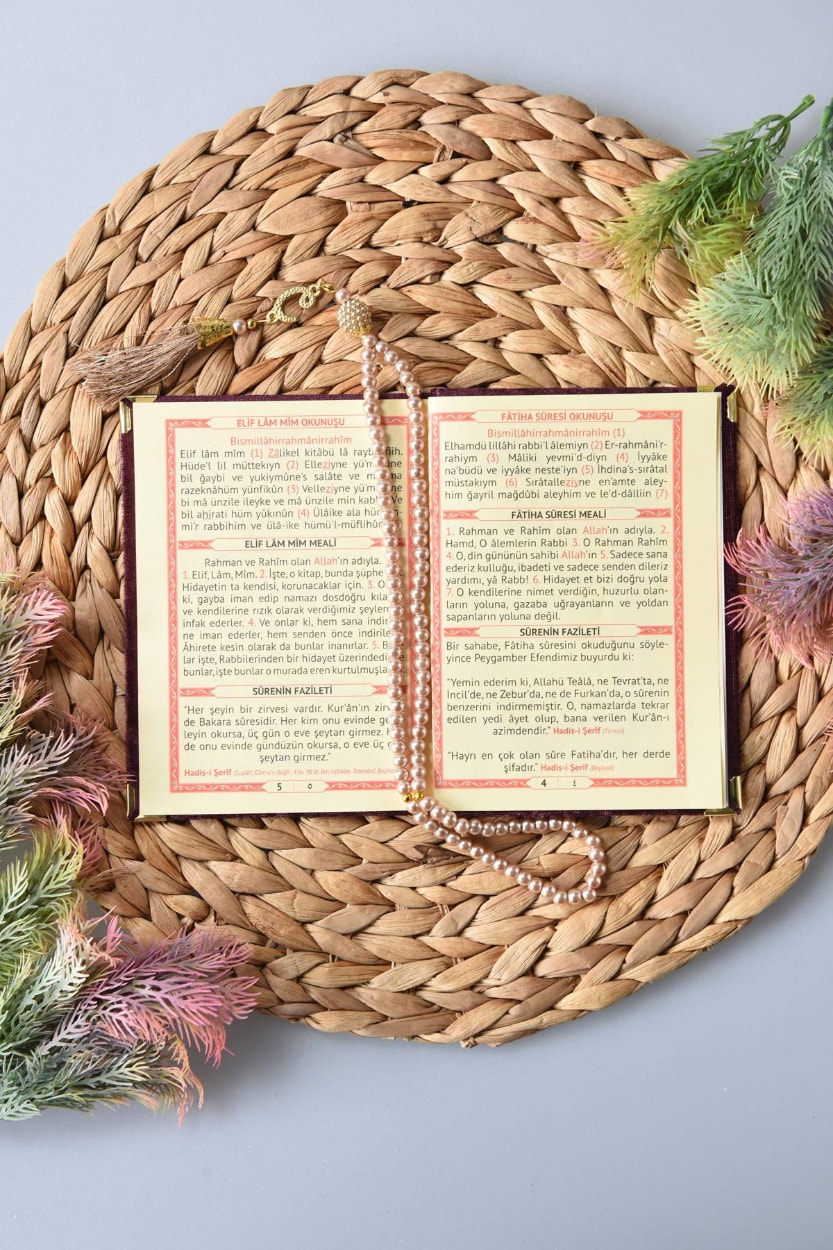 ELİF LÂM MÎM OKUNUŞU
Bismillâhirrahmânirrahîm
Elif lâm mîm (1) Zâlikel kitâbü lâ rayb
Hüde'l lil müttekıyn (2) Elleziyne yü'm
bil ğaybi ve yukıymûne's salâte ve
razeknâhüm yünfikûn (3) Velleziyne yü'm
bi mâ ünzile ileyke ve mâ ünzile min kab Ve
bil ahirati hüm yûkınûn (4) Ülâike ala
mi'r rabbihim ve ülâ-ike hümü'l-müflihûn
ELİF LÂM MÎM MEALİ
Rahman ve Rahîm olan Allah'ın adıyla.
1. Elif, Lâm, Mîm. 2. İşte, o kitap, bunda şüphe
Hidayetin ta kendisi, korunacaklar için. 3. O
ki, gayba iman edip namazı dosdoğru
ve kendilerine rızık olarak verdiğimiz
infak ederler. 4. Ve onlar ki, hem sana
ne iman ederler, hem senden önce
Âhirete kesin olarak da bunlar inanırlar. 5.
lar işte, Rabbilerinden bir hidayet
bunlar, işte bunlar o murada eren
SÛRENİN FAZİLETİ
"Her şeyin bir zirvesi vardır. Kur'ân'ın
de Bakara sûresidir. Her kim onu evinde
leyin okursa, üç gün o eve şeytan girmez.
de onu evinde gündüzün okursa, o eve üç
şeytan girmez."
Hadîs-i Şerîf
5 ٥
FÂTİHA SÛRESİ OKUNUŞU
Bismillâhirrahmânirrahîm (1)
Elhamdü lillâhi rabbi'l âlemiyn (2) Er-rahmâni'r-
rahiym (3) Mâliki yevmi'd-diyn (4) İyyâke
na'büdü ve iyyâke neste'iyn (5) İhdina's-sırâtal
müstakıym (6) Sırâtalleziyne en'amte aley-
him ğayril mağdûbi aleyhim ve le'd-dâlliin (7)
FÂTİHA SÛRESİ MEALİ
1. Rahman ve Rahîm olan Allah'ın adıyla. 2.
Hamd, O âlemlerin Rabbi 3. O Rahman Rahîm
4. O, din gününün sahibi Allah'ın 5. Sadece sana
ederiz kulluğu, ibadeti ve sadece senden dileriz
yardımı, yâ Rabb! 6. Hidayet et bizi doğru yola
7. O kendilerine nimet verdiğin, huzurlu olan-
ların yoluna, gazaba uğrayanların ve yoldan
sapanların yoluna değil.
SÛRENİN FAZİLETİ
Bir sahabe, Fâtiha sûresini okuduğunu söyle-
yince Peygamber Efendimiz buyurdu ki:
"Yemin ederim ki, Allahü Teâlâ, ne Tevrat'ta, ne
İncil'de, ne Zebur'da, ne de Furkan'da, o sûrenin
benzerini indirmemiştir. O, namazlarda tekrar
edilen yedi âyet olup, bana verilen Kur'ân-ı
azimdendir." Hadîs-i Şerîf (Tirmizî)
"Hayrı en çok olan sûre Fatiha'dır, her derde
şifadır." Hadîs-i Şerîf (Beyhakî)
4 ٤